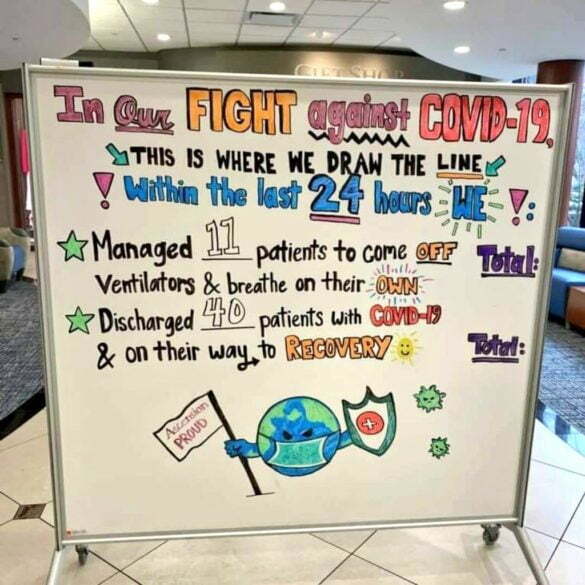 GIFT SHOP
In Our FIGHT against COVID-19,
THIS IS WHERE WE DRAW THE LINE
! Within the last 24 hours WE !:
Managed 11 patients to come OFF Total:
Ventilators & breathe on their OWN
Discharged 40 patients with COVID-19
& on their way to RECOVERY Total:
Ascension
PROUD